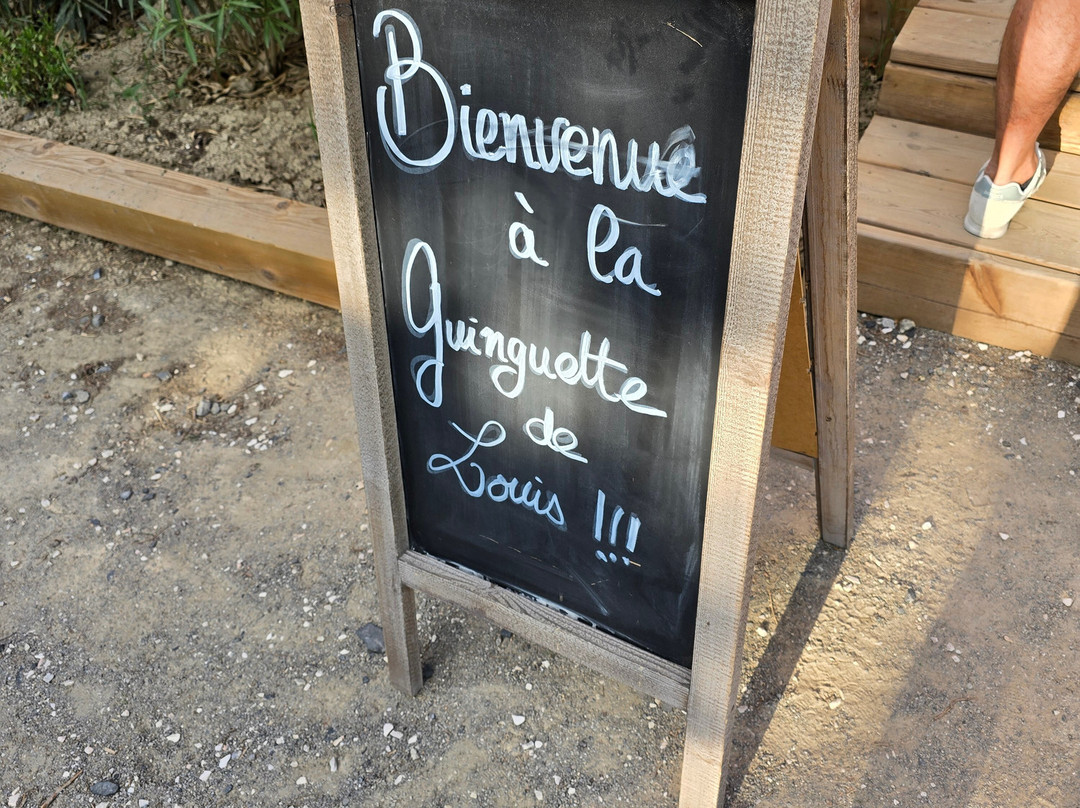 Bienvenue
à la
Guinguette
de
Louis !!!